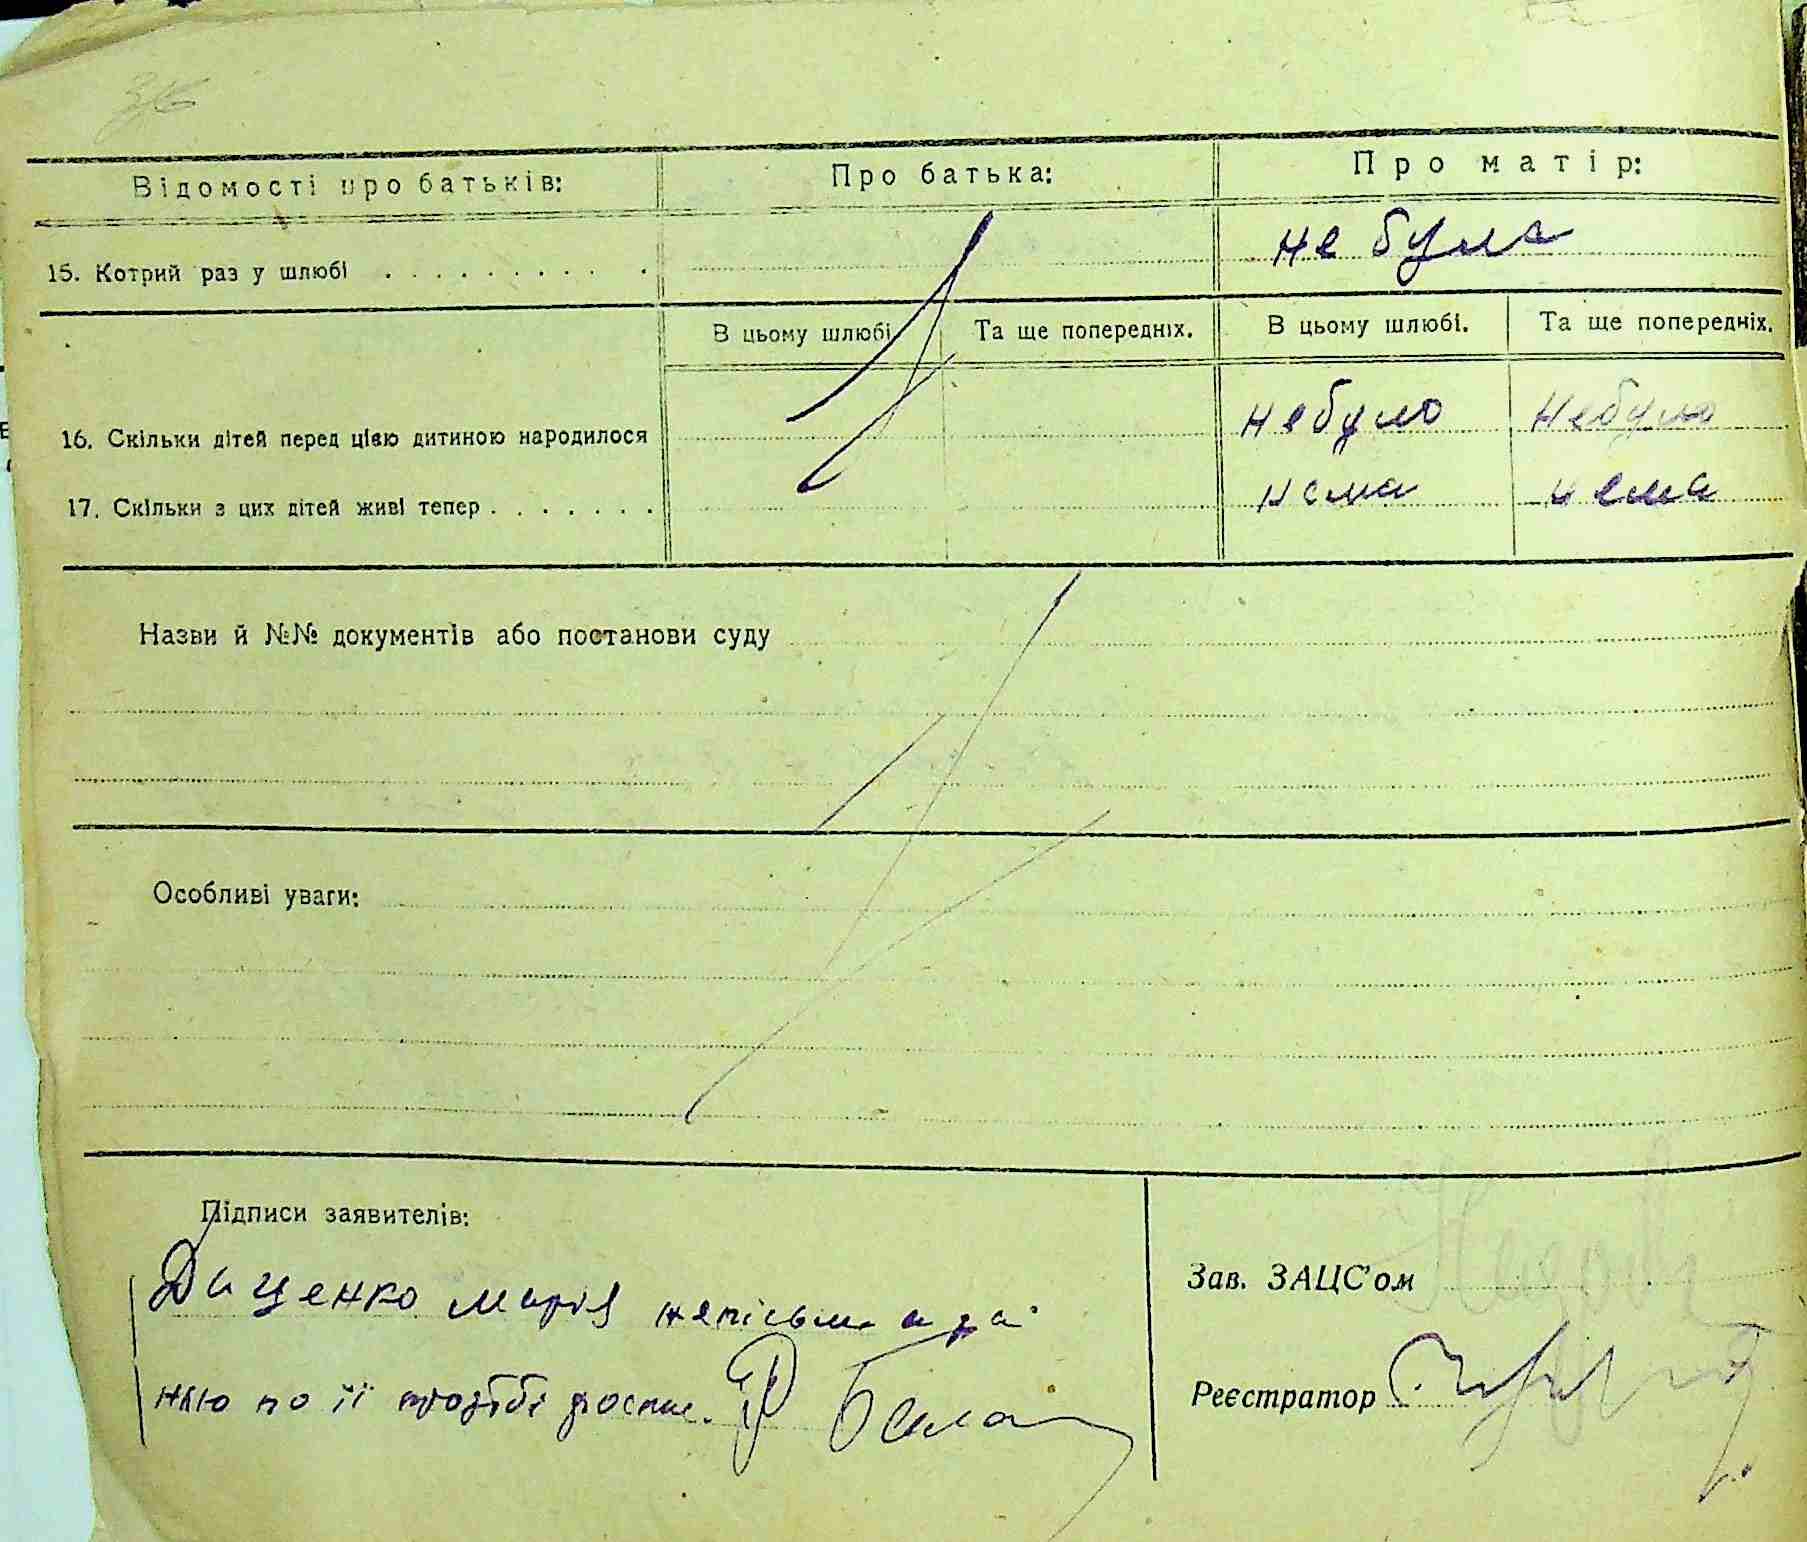 Відомості про батьків: Про батька: Про матір:
15. Котрий раз у шлюбі не була
В цьому шлюбі Та ще попередніх. В цьому шлюбі. Та ще попередніх.
16. Скільки дітей перед цією дитиною народилося небуло небуло
17. Скільки з цих дітей живі тепер нема нема
Назви й №№ документів або постанови суду
Особливі уваги:
Підписи заявителів:
Даценко Марія
нею по її прозьбі роспис.
Зав. ЗАЦС'ом
Реєстратор